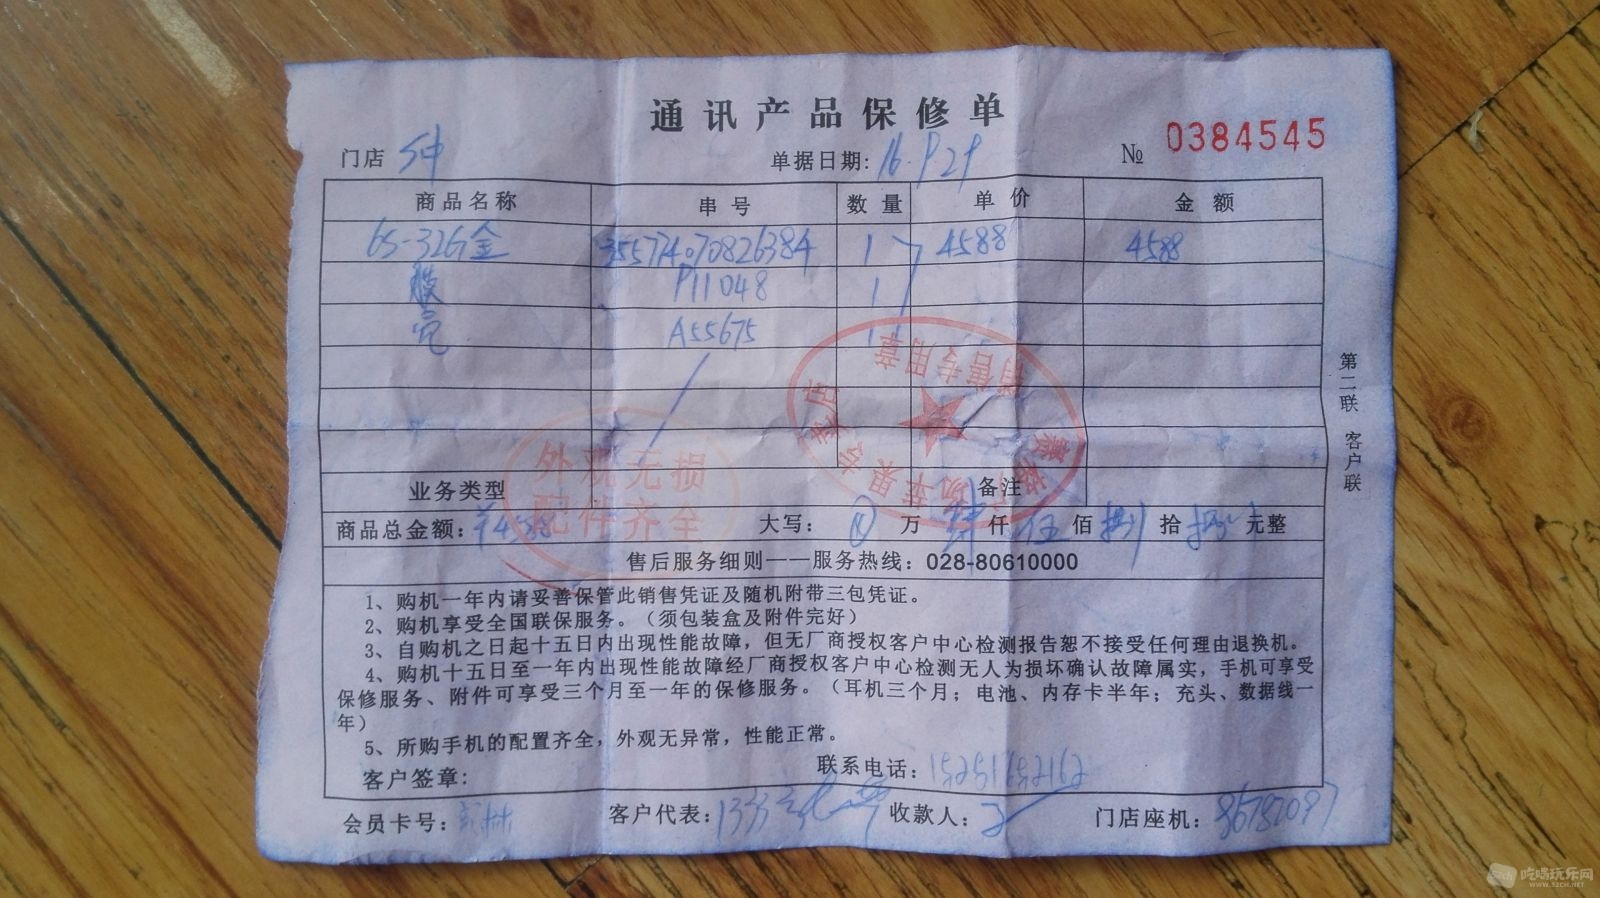 通讯产品保修单
门店
单据日期:
№ 0384545
商品名称 串号 数量 单价 金额
6S-32G金 355774070826384 1 4588 4588
膜 P11048 1
壳 A55675 1
外观无损
配件齐全
销售专用章
第二联 客户联
业务类型 备注
商品总金额: ¥4588 大写: ⊗万 肆仟 伍佰 捌拾 捌元整
售后服务细则——服务热线: 028-80610000
1、购机一年内请妥善保管此销售凭证及随机附带三包凭证。
2、购机享受全国联保服务。(须包装盒及附件完好)
3、自购机之日起十五日内出现性能故障,但无厂商授权客户中心检测报告恕不接受任何理由退换机。
4、购机十五日至一年内出现性能故障经厂商授权客户中心检测无人为损坏确认故障属实,手机可享受
保修服务、附件可享受三个月至一年的保修服务。(耳机三个月;电池、内存卡半年;充头、数据线一
年)
5、所购手机的配置齐全,外观无异常,性能正常。
客户签章:
联系电话: 15251652162
会员卡号: 客户代表: 收款人: 门店座机: 86782097
吃喝玩乐网
WWW.52CH.NET